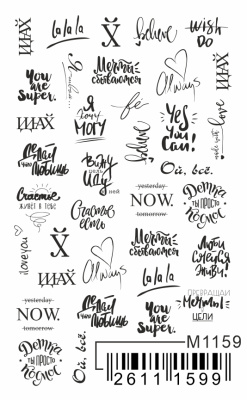 ЦДАХ
la la la
Х̆
believe
wish
DO
You
are
Super.
Я
люблю...
Мечты
сбываются
Always
ЦДАХ
Я
хочу
МОГУ
be
Yes
You
Can!
made with love
ЦДАХ
Делай
что
Любишь
Вижу
цДу
ней
believe
Ой, всё.
Счастье
ЖИВЕТ В ТЕБЕ
Счастье
есть
yesterday
NOW.
tomorrow
Детка
ТЫ ПРОСТО
Космос
love you
Х̆
ЦДАХ
Always
Мечты
сбываются
la la la
Люби
Смейся
Живи!
yesterday
NOW.
tomorrow
Делай
что
Любишь
You
are
Super.
ПРЕВРАЩАЙ
Мечты
В ЦЕЛИ
Детка
ТЫ ПРОСТО
Космос
Ой, всё.
la la la
M1159
2611 1599